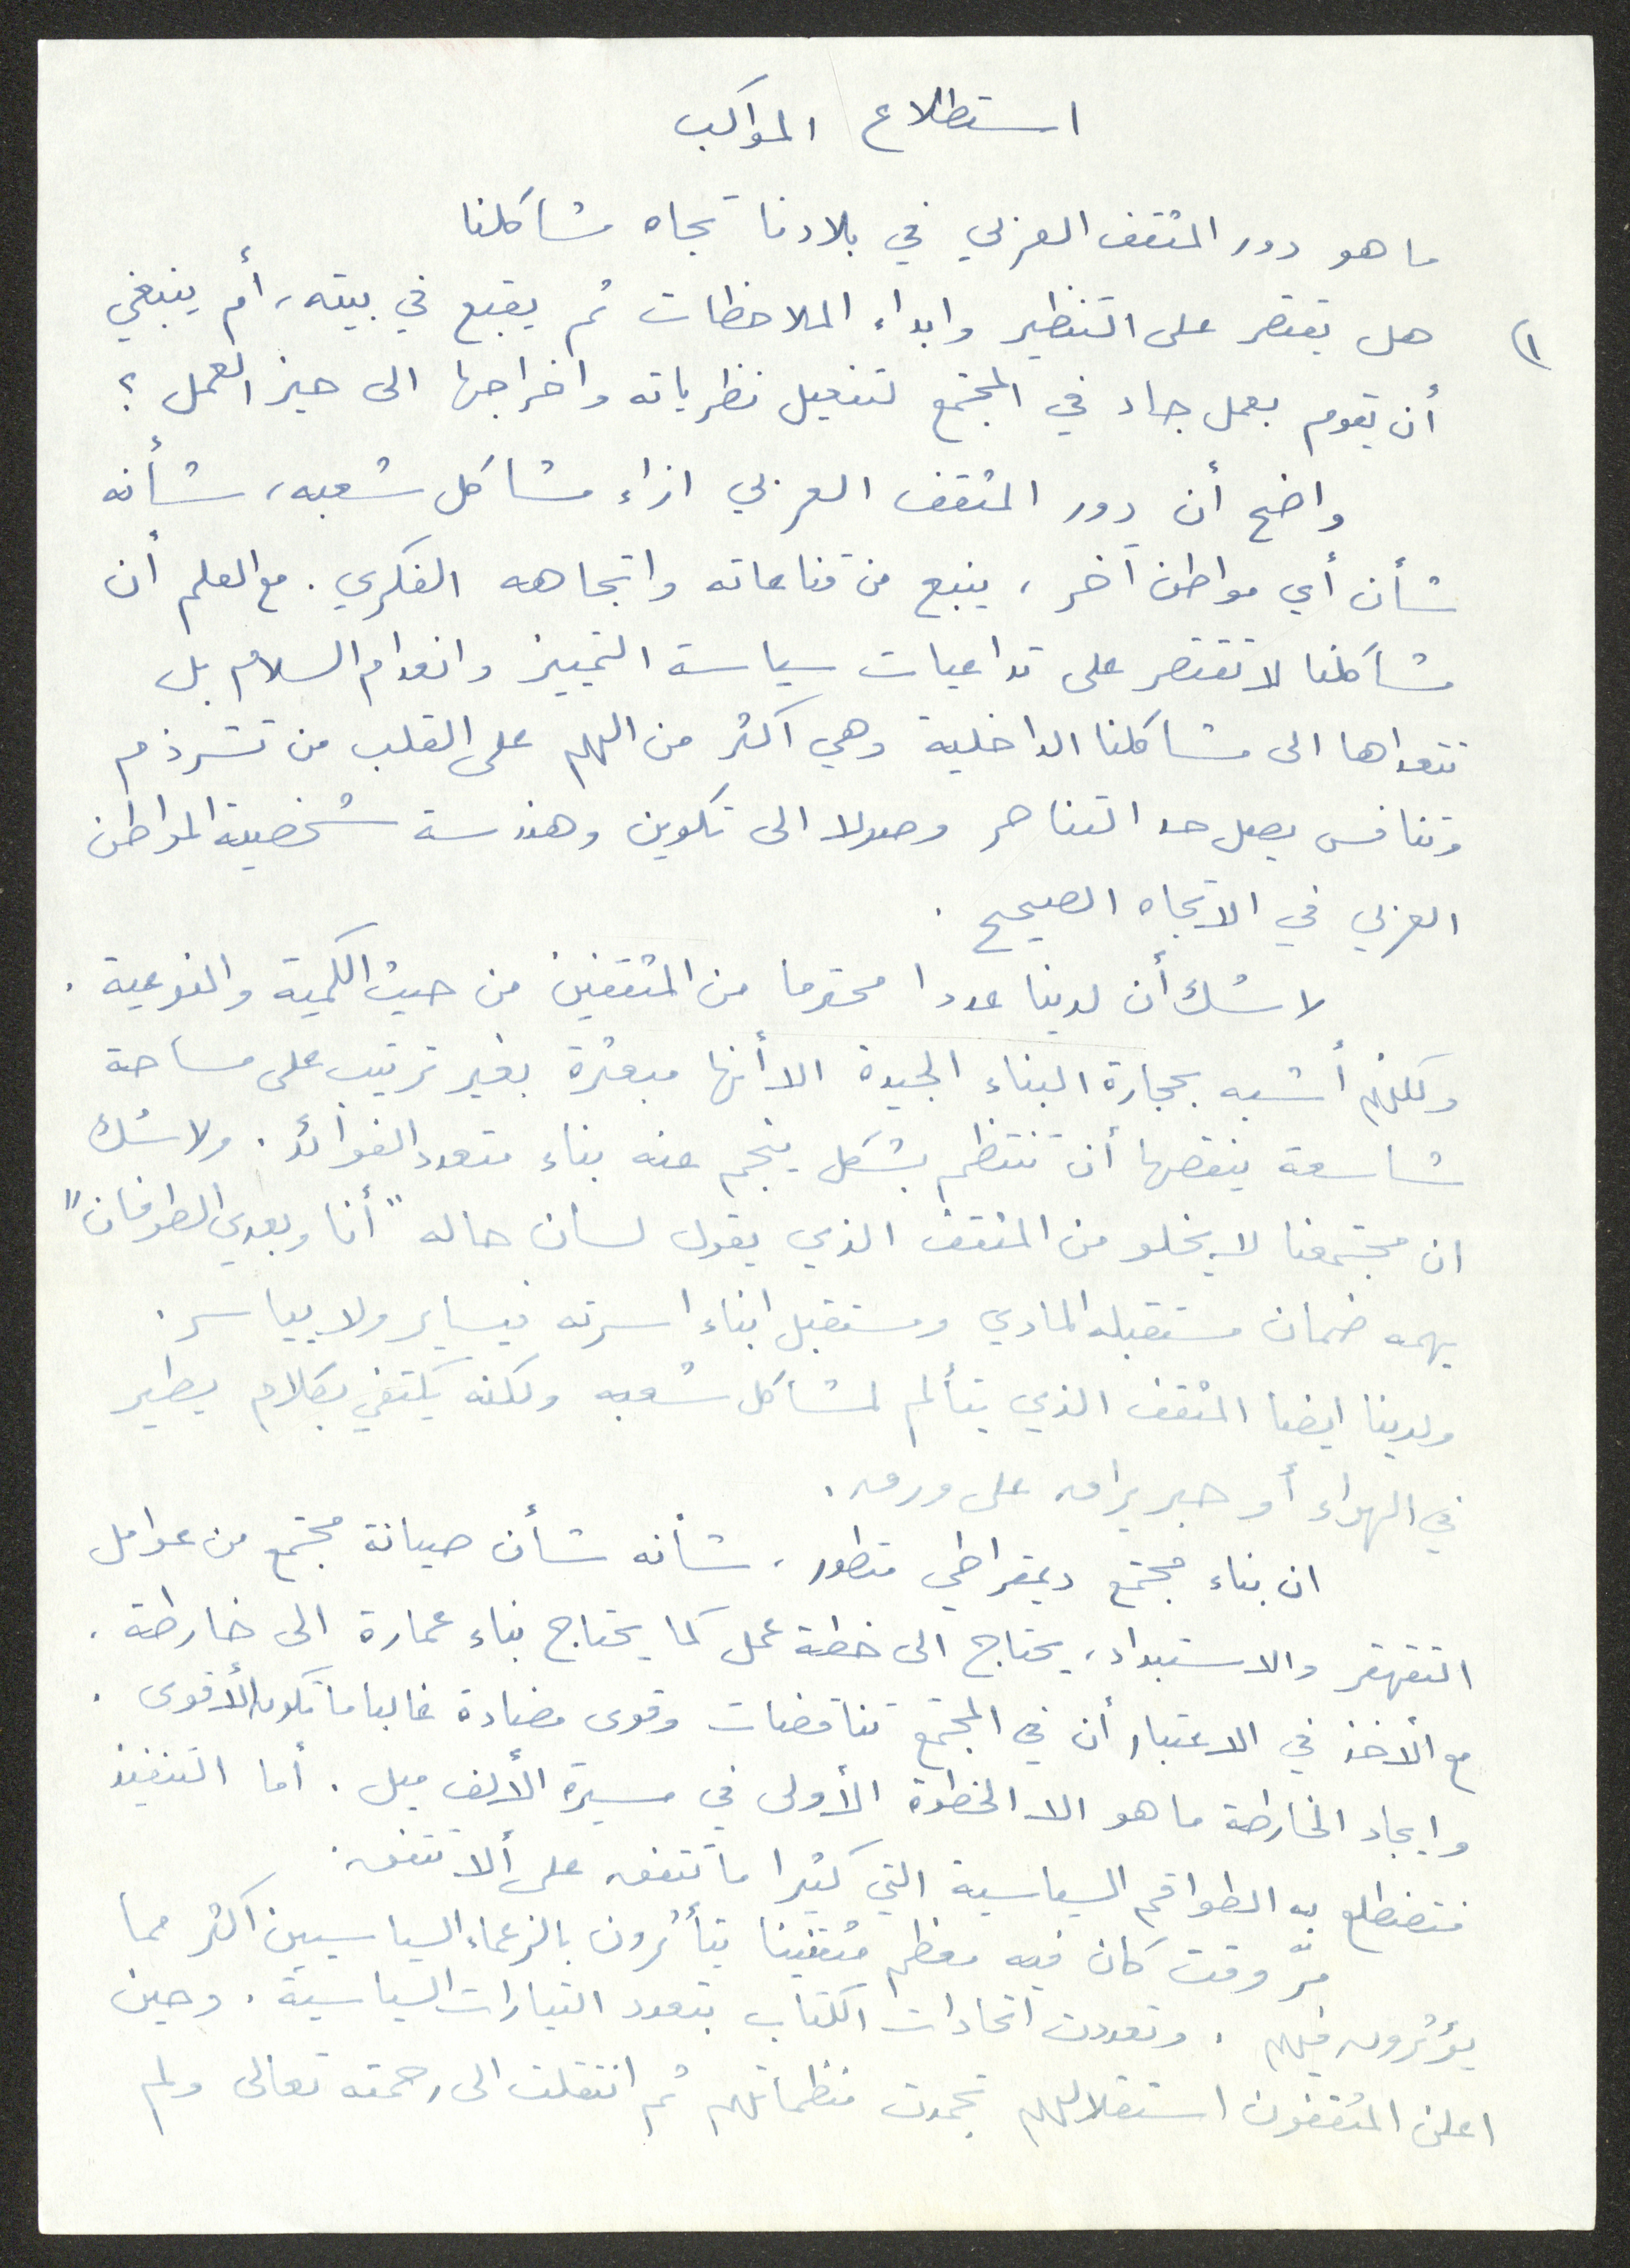 استطلاع المواكب
ما هو دور المثقف العربي في بلادنا تجاه مشاكلنا
١) هل يقتصر على التنظير وابداء الملاحظات ثم يقبع في بيته، أم ينبغي
أن يقوم بعمل جاد في المجتمع لتفعيل نظرياته واخراجها الى حيز العمل ؟
واضح أن دور المثقف العربي ازاء مشاكل شعبه، شأنه
شأن أي مواطن آخر، ينبع من قناعاته واتجاهه الفكري. مع العلم أن
مشاكلنا لا تقتصر على تداعيات سياسة التمييز وانعدام السلام بل
تتعداها الى مشاكلنا الداخلية وهي أكثر من الهم على القلب من تشرذم
وتنافس يصل حد التناحر وصولا الى تكوين وهندسة شخصية المواطن
العربي في الاتجاه الصحيح.
لا شك أن لدينا عددا محترما من المثقفين من حيث الكمية والنوعية.
ولكنهم أشبه بحجارة البناء الجيدة الا أنها مبعثرة بغير ترتيب على مساحة
شاسعة ينقصها أن تنتظم بشكل ينجم عنه بناء متعدد الفوائد. ولا شك
ان مجتمعنا لا يخلو من المثقف الذي يقول لسان حاله "أنا وبعدي الطوفان"
يهمه ضمان مستقبله المادي ومستقبل ابناء اسرته فيساير ولا يياسر.
ولدينا ايضا المثقف الذي يتألم لمشاكل شعبه ولكنه يكتفي بكلام يطير
في الهواء أو حبر يراق على ورق.
ان بناء مجتمع ديمقراطي متطور، شأنه شأن صيانة مجتمع من عوامل
التقهقر والاستبداد، يحتاج الى خطة عمل كما يحتاج بناء عمارة الى خارطة.
مع ألاخذ في الاعتبار أن في المجتمع تناقضات وقوى مضادة غالبا ما تكون الأقوى.
وايجاد الخارطة ما هو الا الخطوة الأولى في مسيرة الألف ميل. أما التنفيذ
فتضطلع به الطواقم السياسية التي كثيرا ما تتفق على ألا تتفق.
مرّ وقت كان فيه معظم مثقفينا يتأثرون بالزعماء السياسيين اكثر مما
يؤثرون فيهم. وتعددت اتحادات الكتاب بتعدد التيارات السياسية. وحين
اعلن المثقفون استقلالهم تجمدت منظماتهم ثم انتقلت الى رحمته تعالى ولم